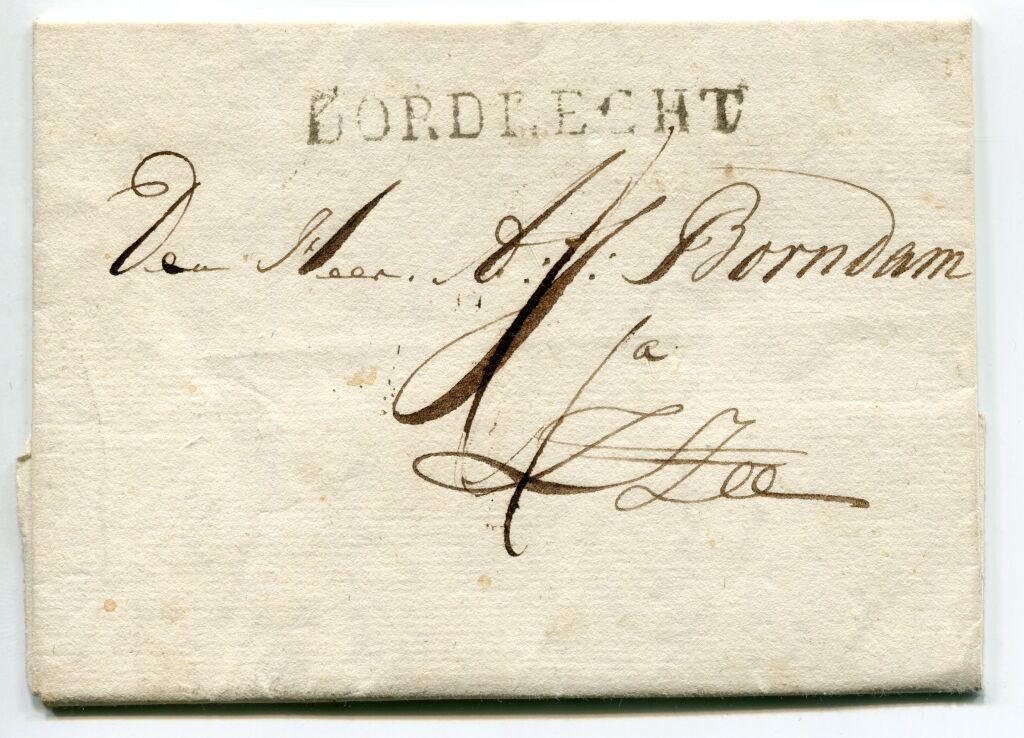 DORDRECHT
Den Heer. A: J: Borndam
a
Z Zee